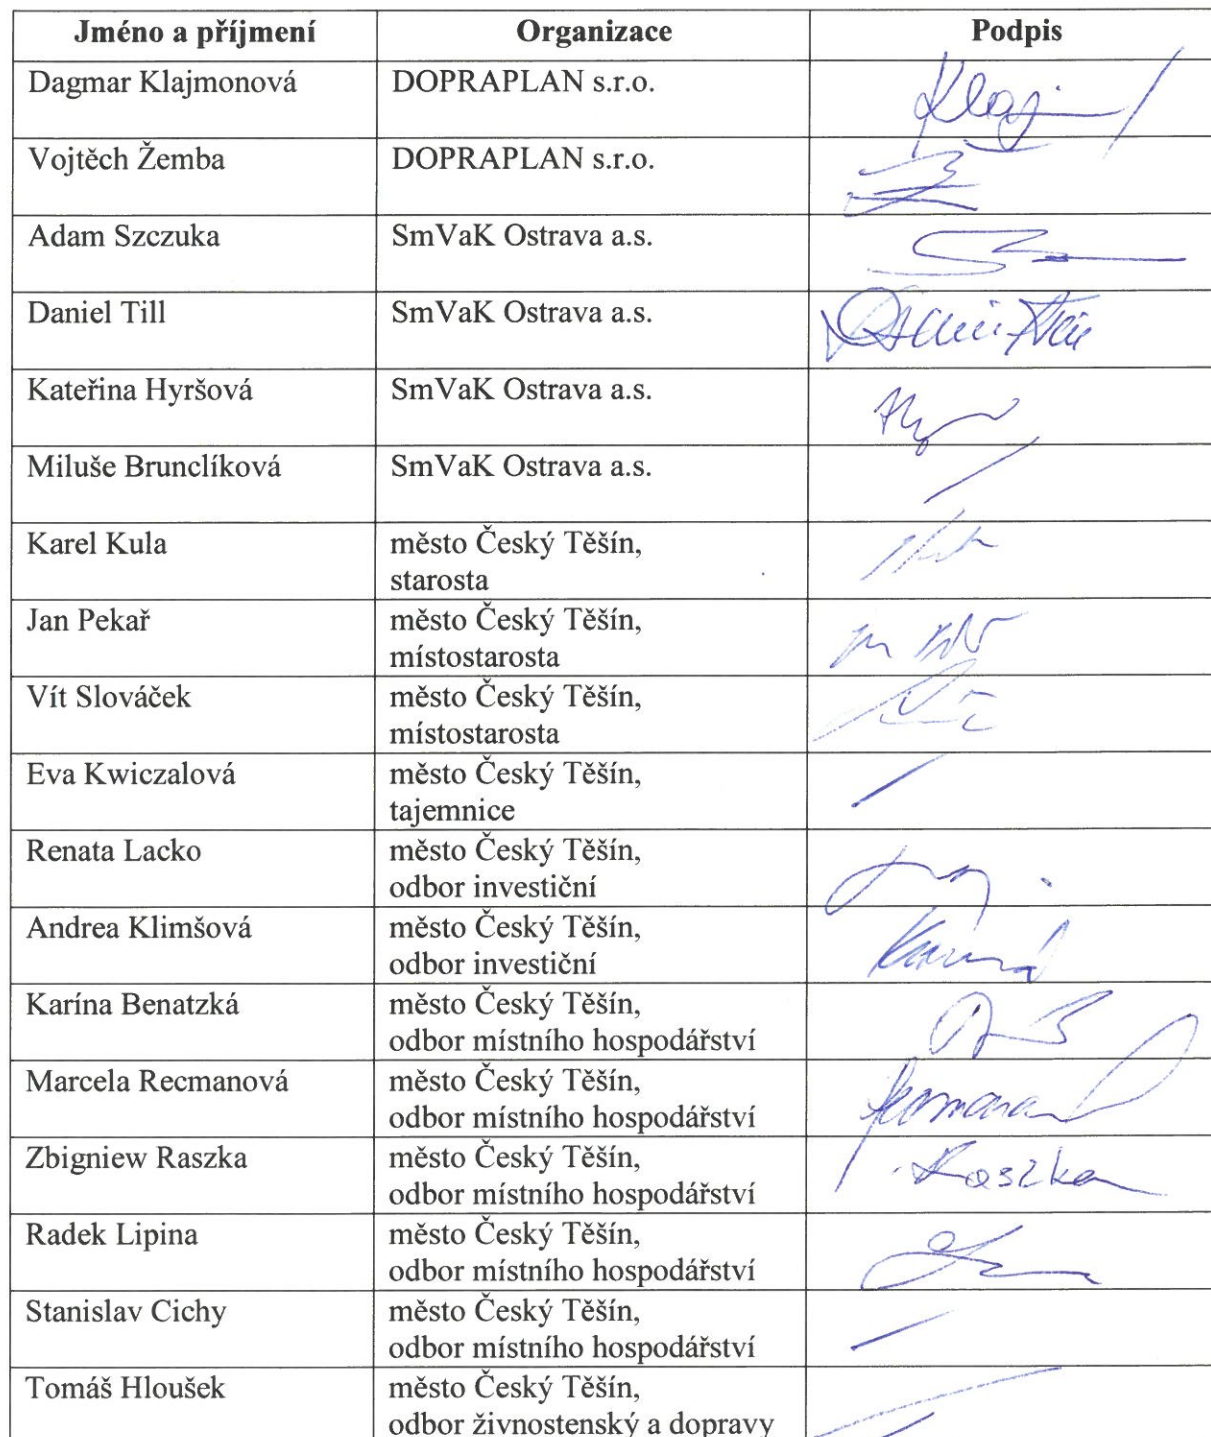 Jméno a příjmení Organizace Podpis
Dagmar Klajmonová DOPRAPLAN s.r.o.
Vojtěch Žemba DOPRAPLAN s.r.o.
Adam Szczuka SmVaK Ostrava a.s.
Daniel Till SmVaK Ostrava a.s.
Kateřina Hyršová SmVaK Ostrava a.s.
Miluše Brunclíková SmVaK Ostrava a.s.
Karel Kula město Český Těšín,
starosta
Jan Pekař město Český Těšín,
místostarosta
Vít Slováček město Český Těšín,
místostarosta
Eva Kwiczalová město Český Těšín,
tajemnice
Renata Lacko město Český Těšín,
odbor investiční
Andrea Klimšová město Český Těšín,
odbor investiční
Karína Benatzká město Český Těšín,
odbor místního hospodářství
Marcela Recmanová město Český Těšín,
odbor místního hospodářství
Zbigniew Raszka město Český Těšín, Raszka
odbor místního hospodářství
Radek Lipina město Český Těšín,
odbor místního hospodářství
Stanislav Cichy město Český Těšín,
odbor místního hospodářství
Tomáš Hloušek město Český Těšín,
odbor živnostenský a dopravy